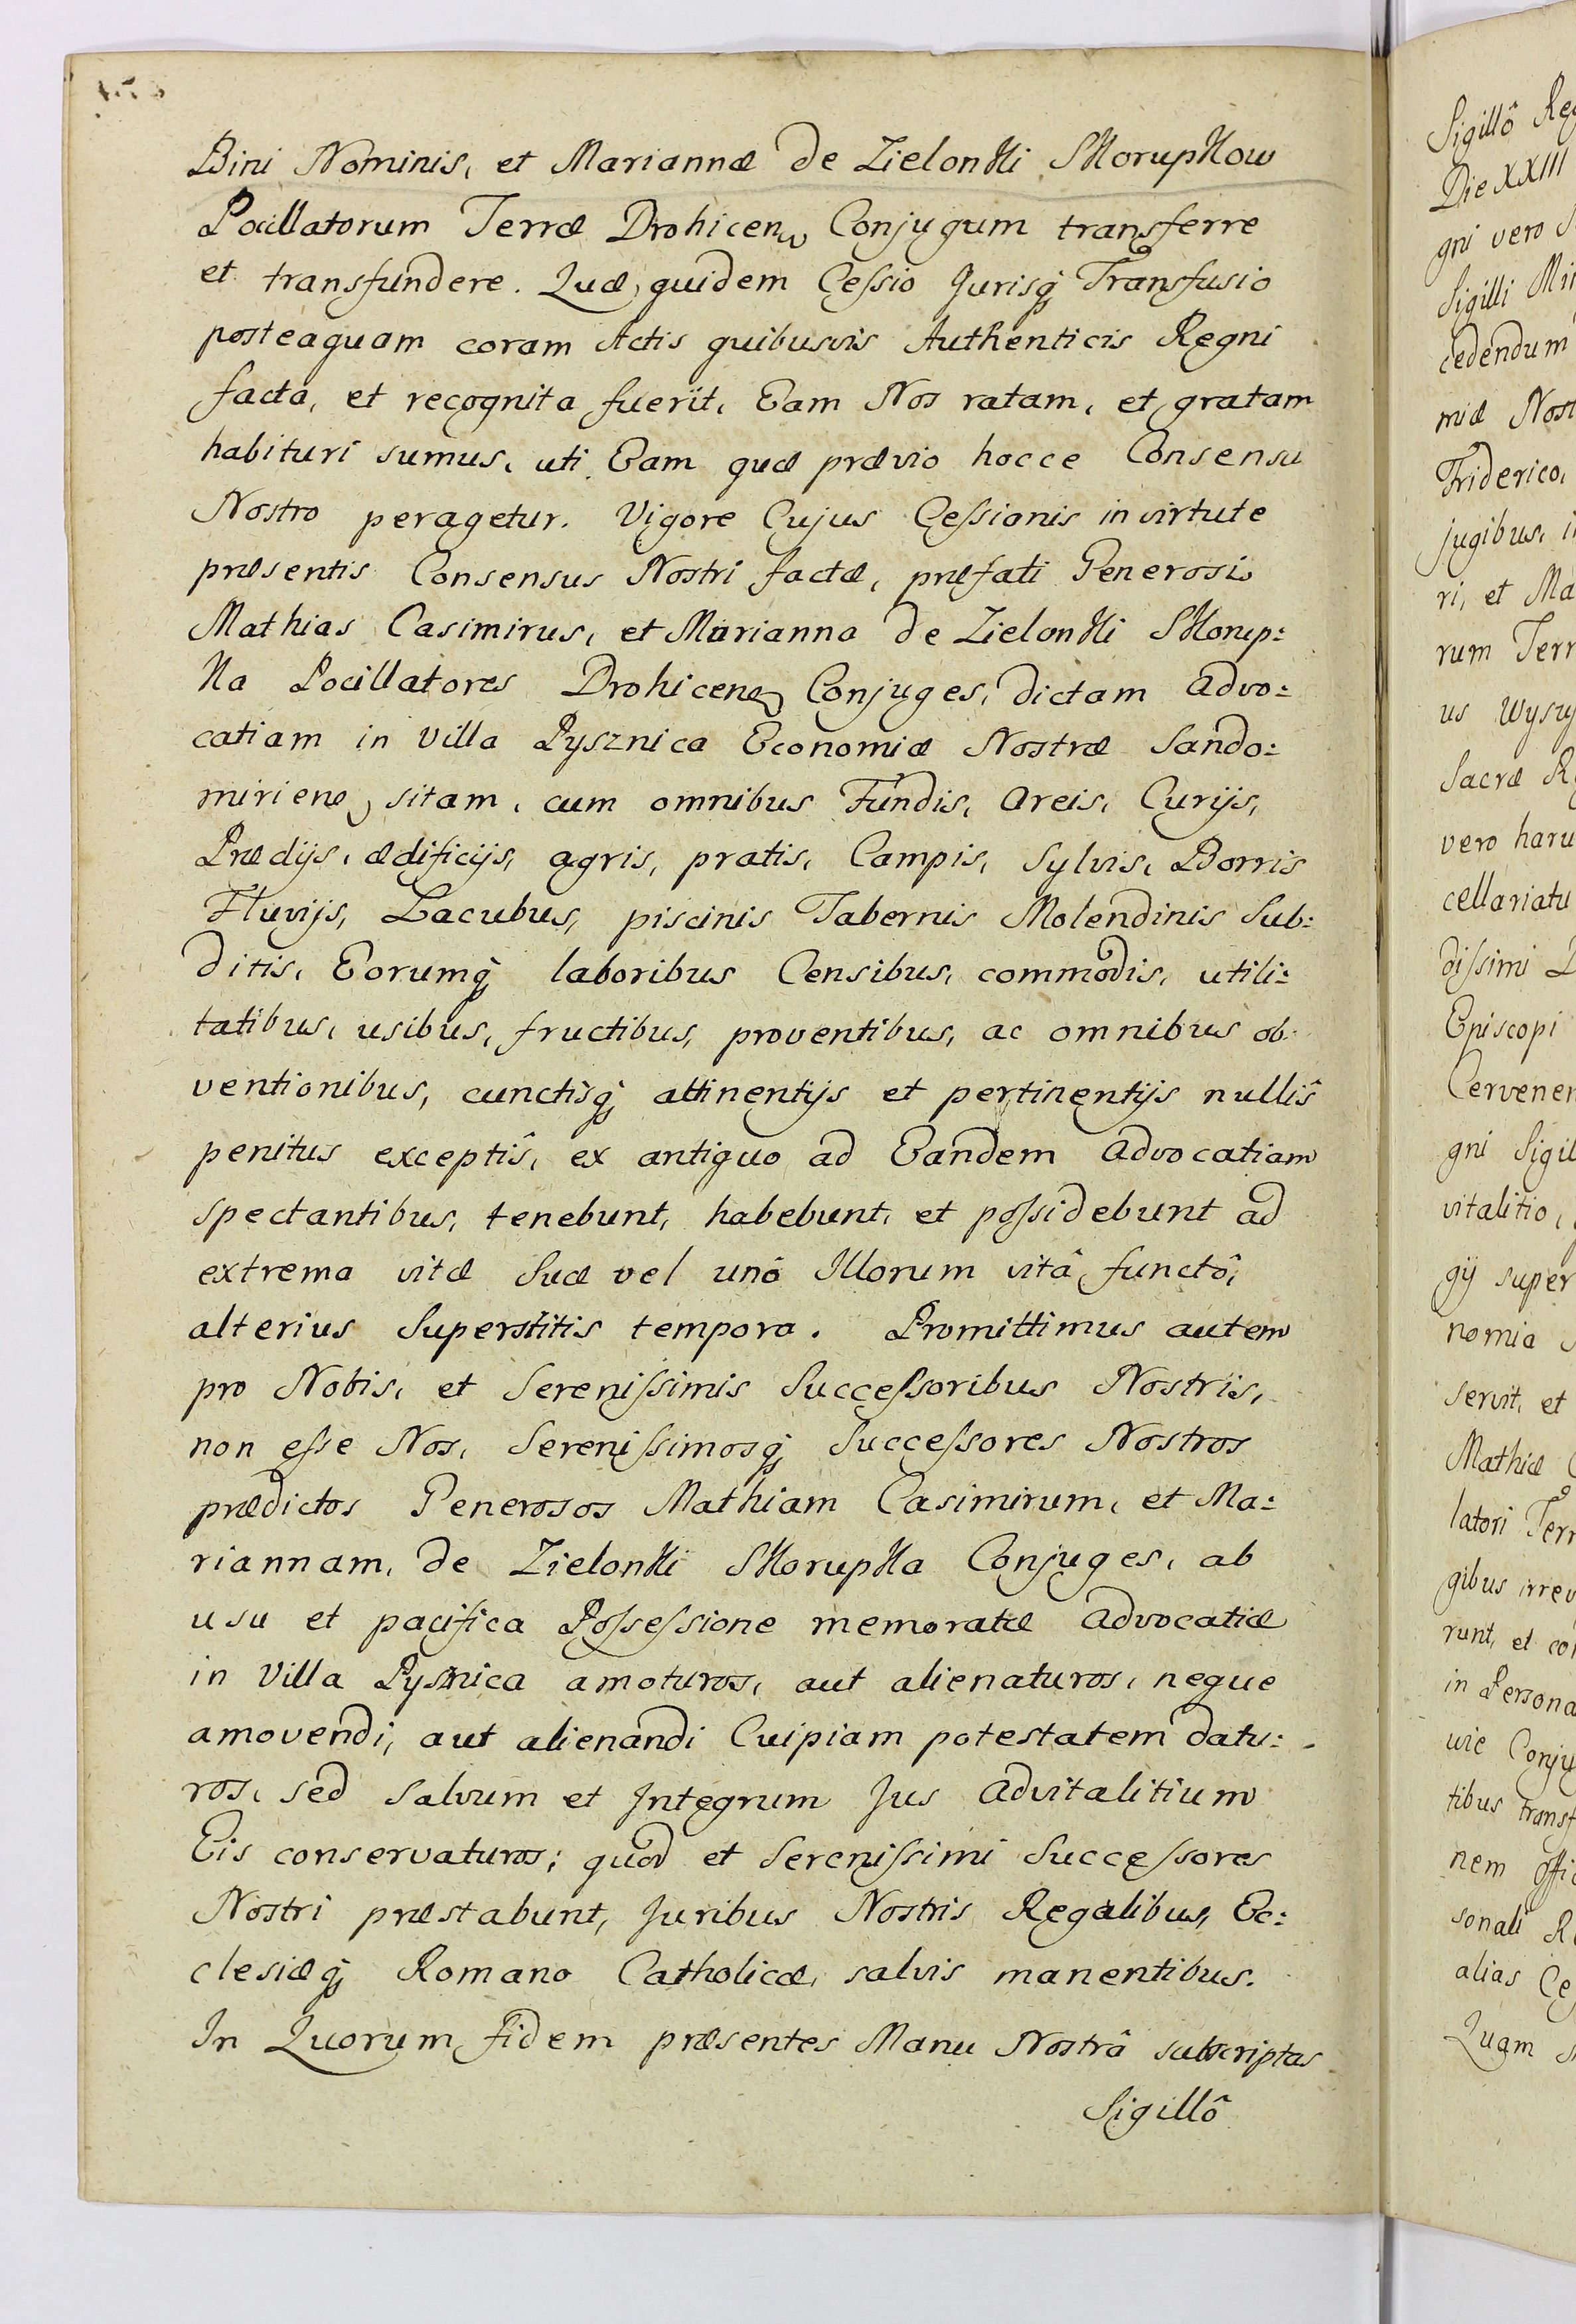 Bini Nominis, et Mariannæ de Zielonki Skorupkow
Pocillatorum Terræ Drohicen Conjugum transferre
et transfundere. Quæ quidem Cessio Jurisq Transfusio
posteaquam coram Actis quibusvis Authenticis Regni
facta, et recognita fuerit, Eam Nos ratam, et gratam
habituri sumus, uti Eam quæ prævio hocce Consensu
Nostro peragetur. Vigore Cujus Cessionis in virtute
præsentis Consensus Nostri factæ, præfati Generosi
Mathias Casimirus, et Marianna de Zielonki Skorup:
ka Pocillatores Drohicen Conjuges, dictam Advo:
catiam in Villa Pysznica Economiæ Nostræ Sando:
mirien sitam, cum omnibus Fundis, Areis, Curijs,
Prædijs, ædificijs, agris, pratis, Campis, Sylvis, Borris
Fluvijs, Lacubus, piscinis Tabernis Molendinis Sub:
ditis, Eorumq laboribus Censibus, commodis, utili:
tatibus, usibus, fructibus, proventibus, ac omnibus ob:
ventionibus, cunctisq attinentijs et pertinentijs nullis
penitus exceptis, ex antiquo ad Eandem Advocatiam
spectantibus, tenebunt, habebunt, et possidebunt ad
extrema vitæ Suæ vel unô Illorum vitâ functô,
alterius Superstitis tempora. Promittimus autem
pro Nobis, et Serenissimis Successoribus Nostris,
non esse Nos, Serenissimosq Successores Nostros
prædictos Generosos Mathiam Casimirum, et Ma:
riannam, de Zielonki Skorupka Conjuges, ab
usu et pacifica Possessione memoratæ Advocatiæ
in Villa Pysznica amoturos, aut alienaturos, neque
amovendi, aut alienandi Cuipiam potestatem datu:
ros, sed Salvum et Integrum Jus Advitalitium
Eis conservaturos; quod et Serenissimi Successores
Nostri præstabunt, Juribus Nostris Regalibus, Ec:
clesiæq Romano Catholicæ, salvis manentibus.
In Quorum fidem præsentes Manu Nostrâ subscriptas
Sigillô
Sigillô Reg
Die XXIII
gni vero S
Sigilli Min
cedendum
miæ Nost
Friderico,
jugibus, i
ri, et Ma
rum Terr
us Wysz
Sacræ R
vero haru
cellariatu
dissimi D
Episcopi
Cervenen
gni Sigil
vitalitio,
gij super
nomia
servit, et
Mathiæ C
latori Terr
gibus irrev
runt, et co
in Persona
vie Conju
tibus transf
nem offi
sonali R
alias Ce
Quam